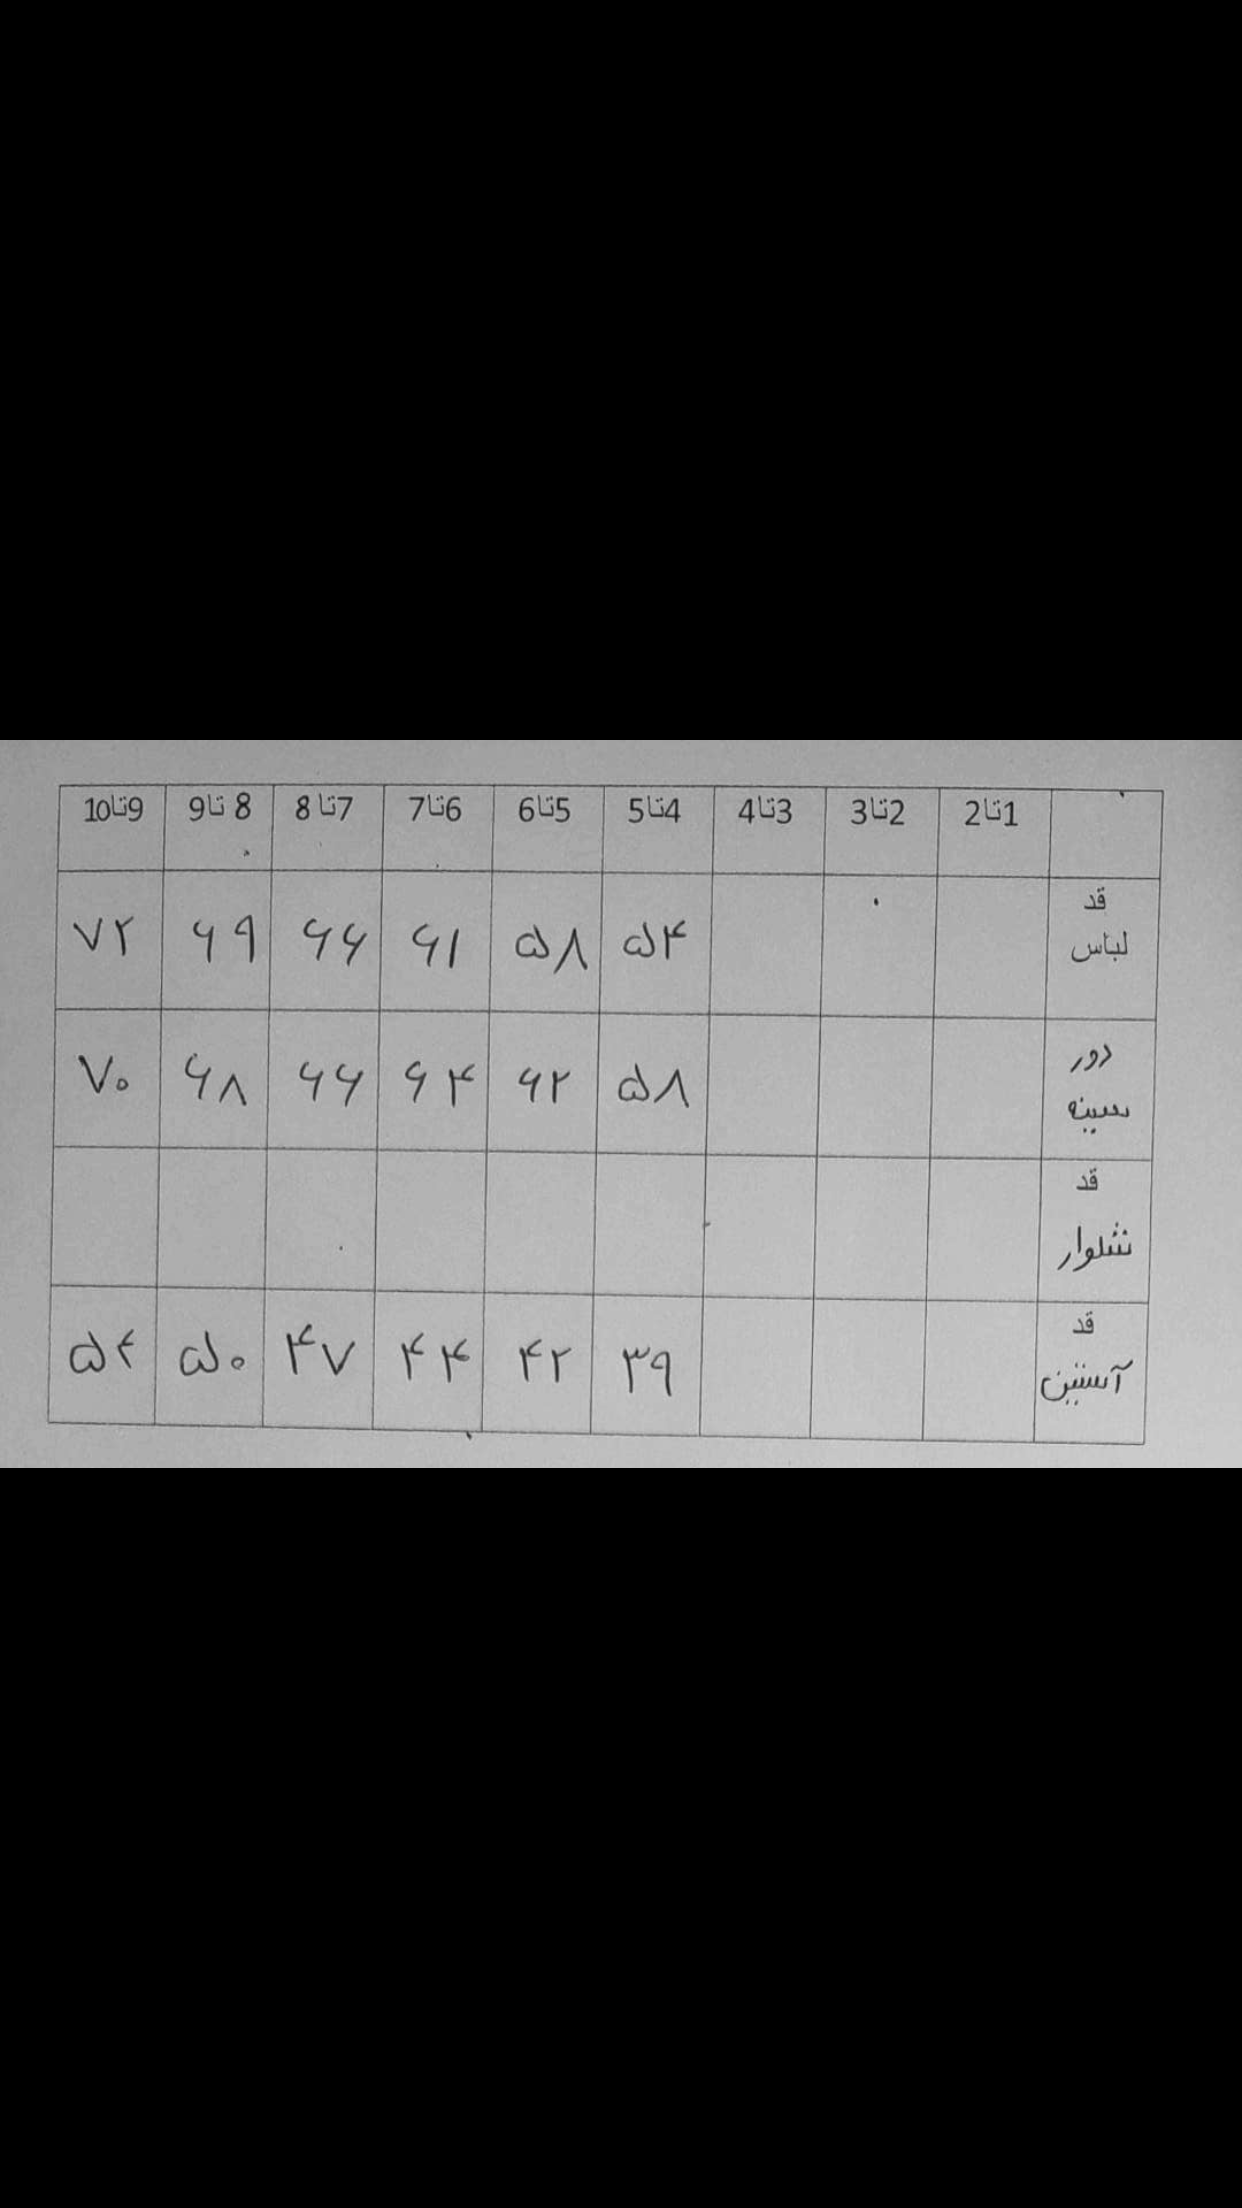 1تا2 2تا3 3تا4 4تا5 5تا6 6تا7 7تا 8 8 تا9 9تا10
قد لباس ۵۴ ۵۸ ۶۱ ۶۶ ۶۹ ۷۲
دور سینه ۵۸ ۶۲ ۶۴ ۶۶ ۶۸ ۷۰
قد شلوار
قد آستین ۳۹ ۴۲ ۴۴ ۴۷ ۵۰